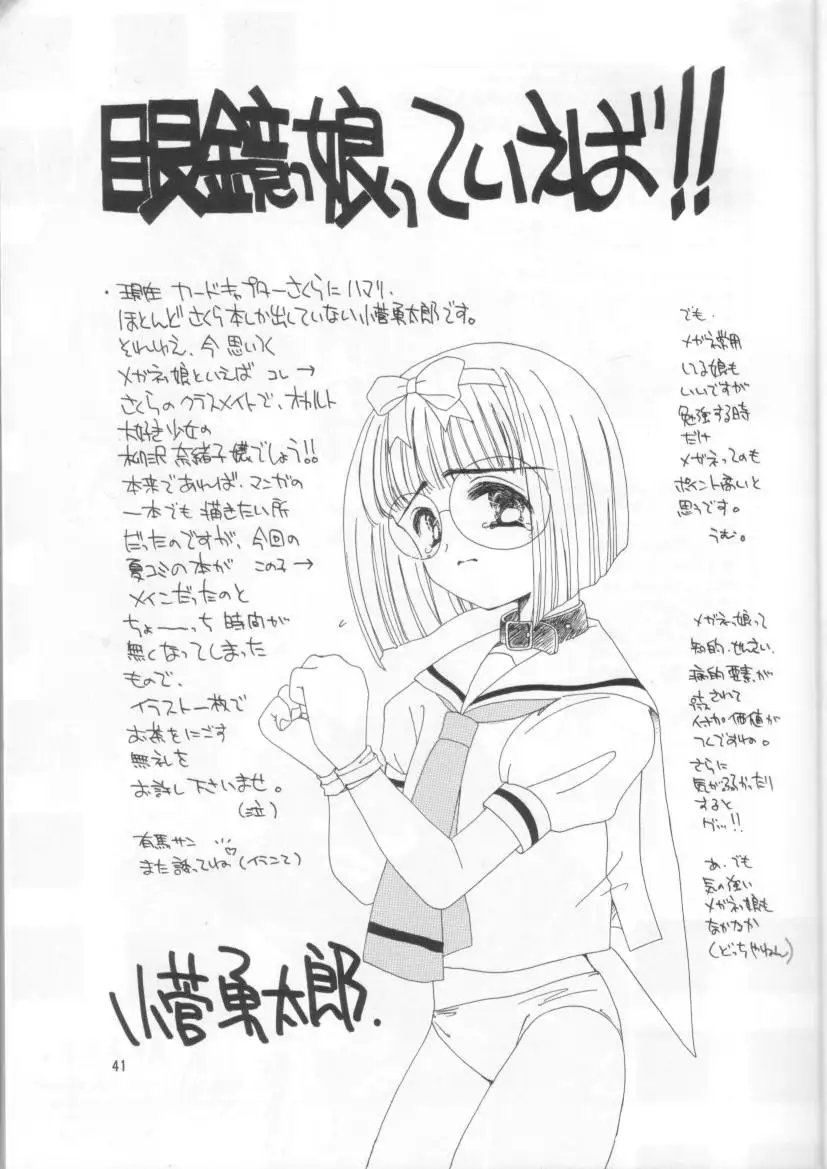 眼鏡っ娘っていえば!!
・現在 カードキャプターさくらにハマリ、
ほとんどさくら本しか出していない小菅勇太郎です。
それゆえ、今 思いつく
メガネっ娘といえば コレ→
さくらのクラスメイトで、オカルト
大好き少女の
柳沢 奈緒子嬢でしょう!!
本来であれば、マンガの
一本でも描きたい所
だったのですが、今回の
夏コミの本が この子→
メインだったのと
ちょーーっち 時間が
無くなってしまった
もので、
イラスト一枚で
お茶をにごす
無礼を
お許し下さいませ。
(泣)
有馬サン
また誘ってね(イラコて)
小菅勇太郎.
41
でも、
メガネ常用
している娘も
いいですが
勉強する時
だけ
メガネってのも
ポイント高いと
思うです。
うむ。
メガネっ娘って
知的、せいそ、
病的要素が
されて
付加価値が
つくですねの。
さらに
気が弱かったり
すると
グッ…!!
あ、でも
気の強い
メガネっ娘も
なかなか
(どっちやねん)